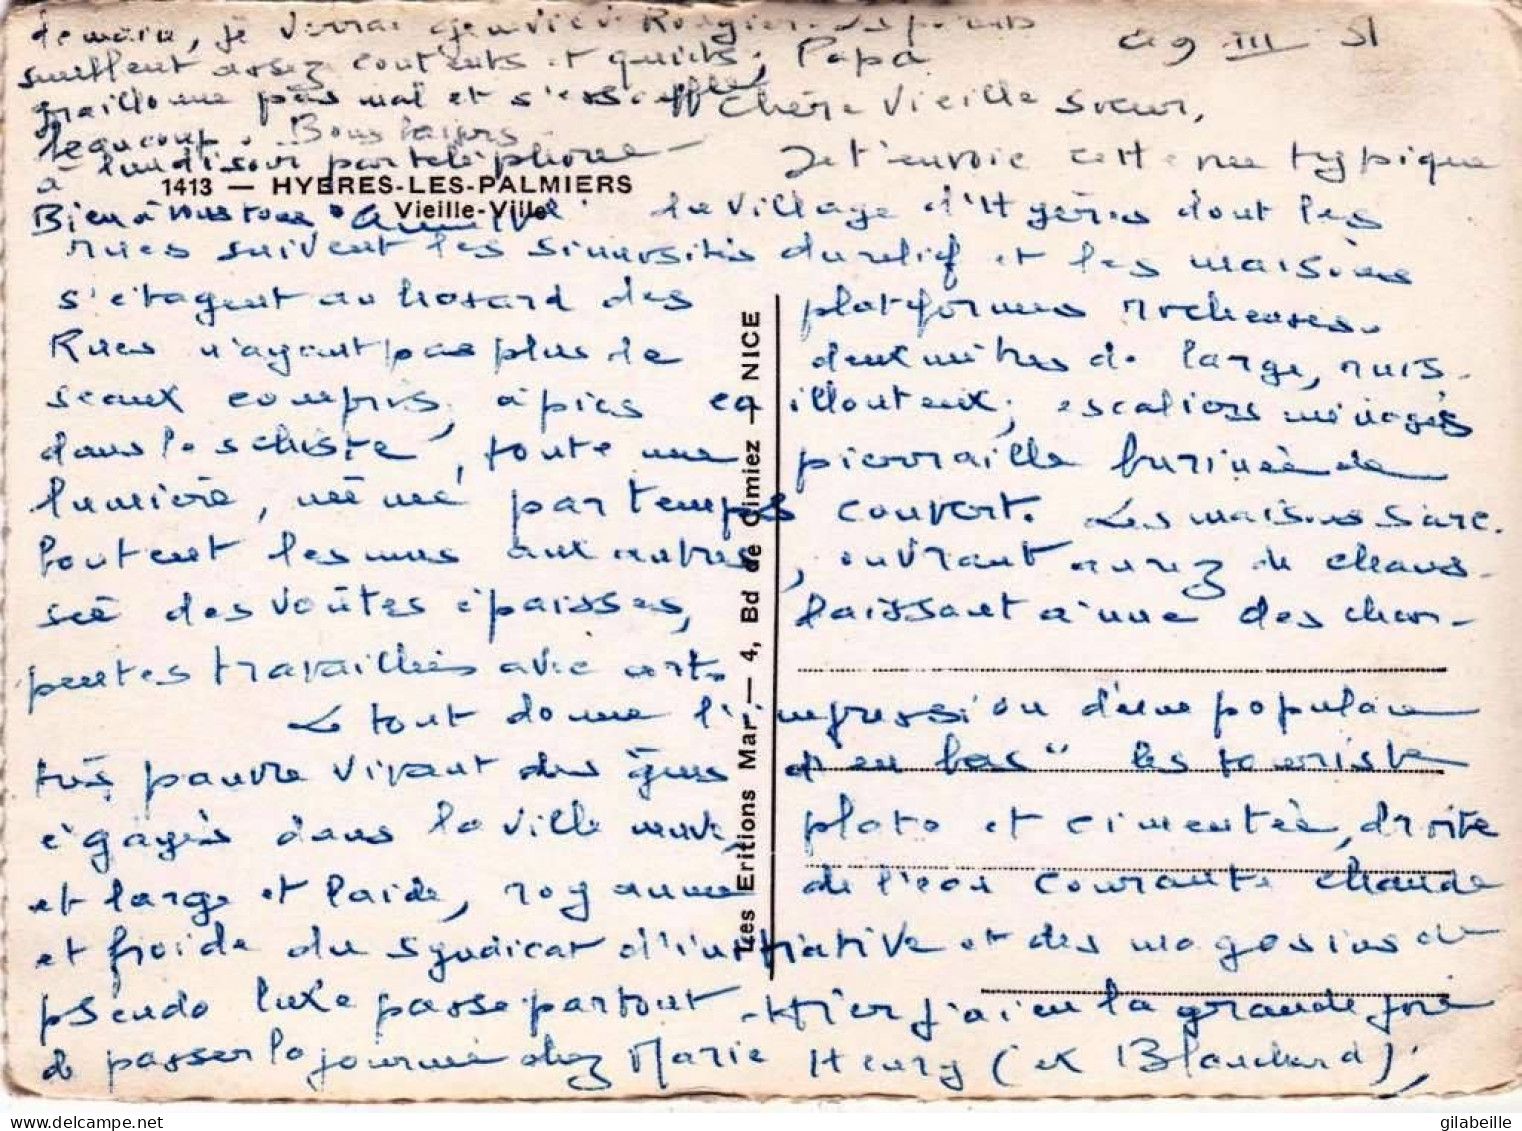 ce 9 III 51
Chère Vieille Sœur,
Je t'envoie cette vue typique
du village d'Hyères dont les
rues suivent les sinuosités du relief et les maisons
s'étagent au hasard des plateformes rocheuses.
Rues n'ayant pas plus de deux mètres de large, ruis-
seaux compris, à pics caillouteux, escaliers ménagés
dans le schiste, toute une pierraille burinée de
lumière, même par temps couvert. Les maisons s'arc-
boutent les unes aux autres, ouvrant au rez de chaus-
sée des voûtes épaisses, laissant à nue des char-
pentes travaillées avec art.
Le tout donne l'impression d'une population
très pauvre vivant des gens "d'en bas" les touristes
égayés dans la ville neuve, plate et cimentée, droite
et large et laide, royaume de l'eau courante chaude
et froide du syndicat d'initiative et des magasins de
pseudo luxe passe partout. Hier j'ai eu la grande joie
de passer la journée chez Marie Henry (et Blanchard);
demain, je verrai Geneviève Rougier. Les parents
semblent assez contents et quiets; Papa
graillonne pas mal et s'essouffle
beaucoup. Bons baisers
à lundi soir par téléphone
Bien à vous tous
1413 — HYÈRES-LES-PALMIERS
Vieille-Ville
Les Eritions Mar. — 4, Bd de Cimiez — NICE
© gilabeille